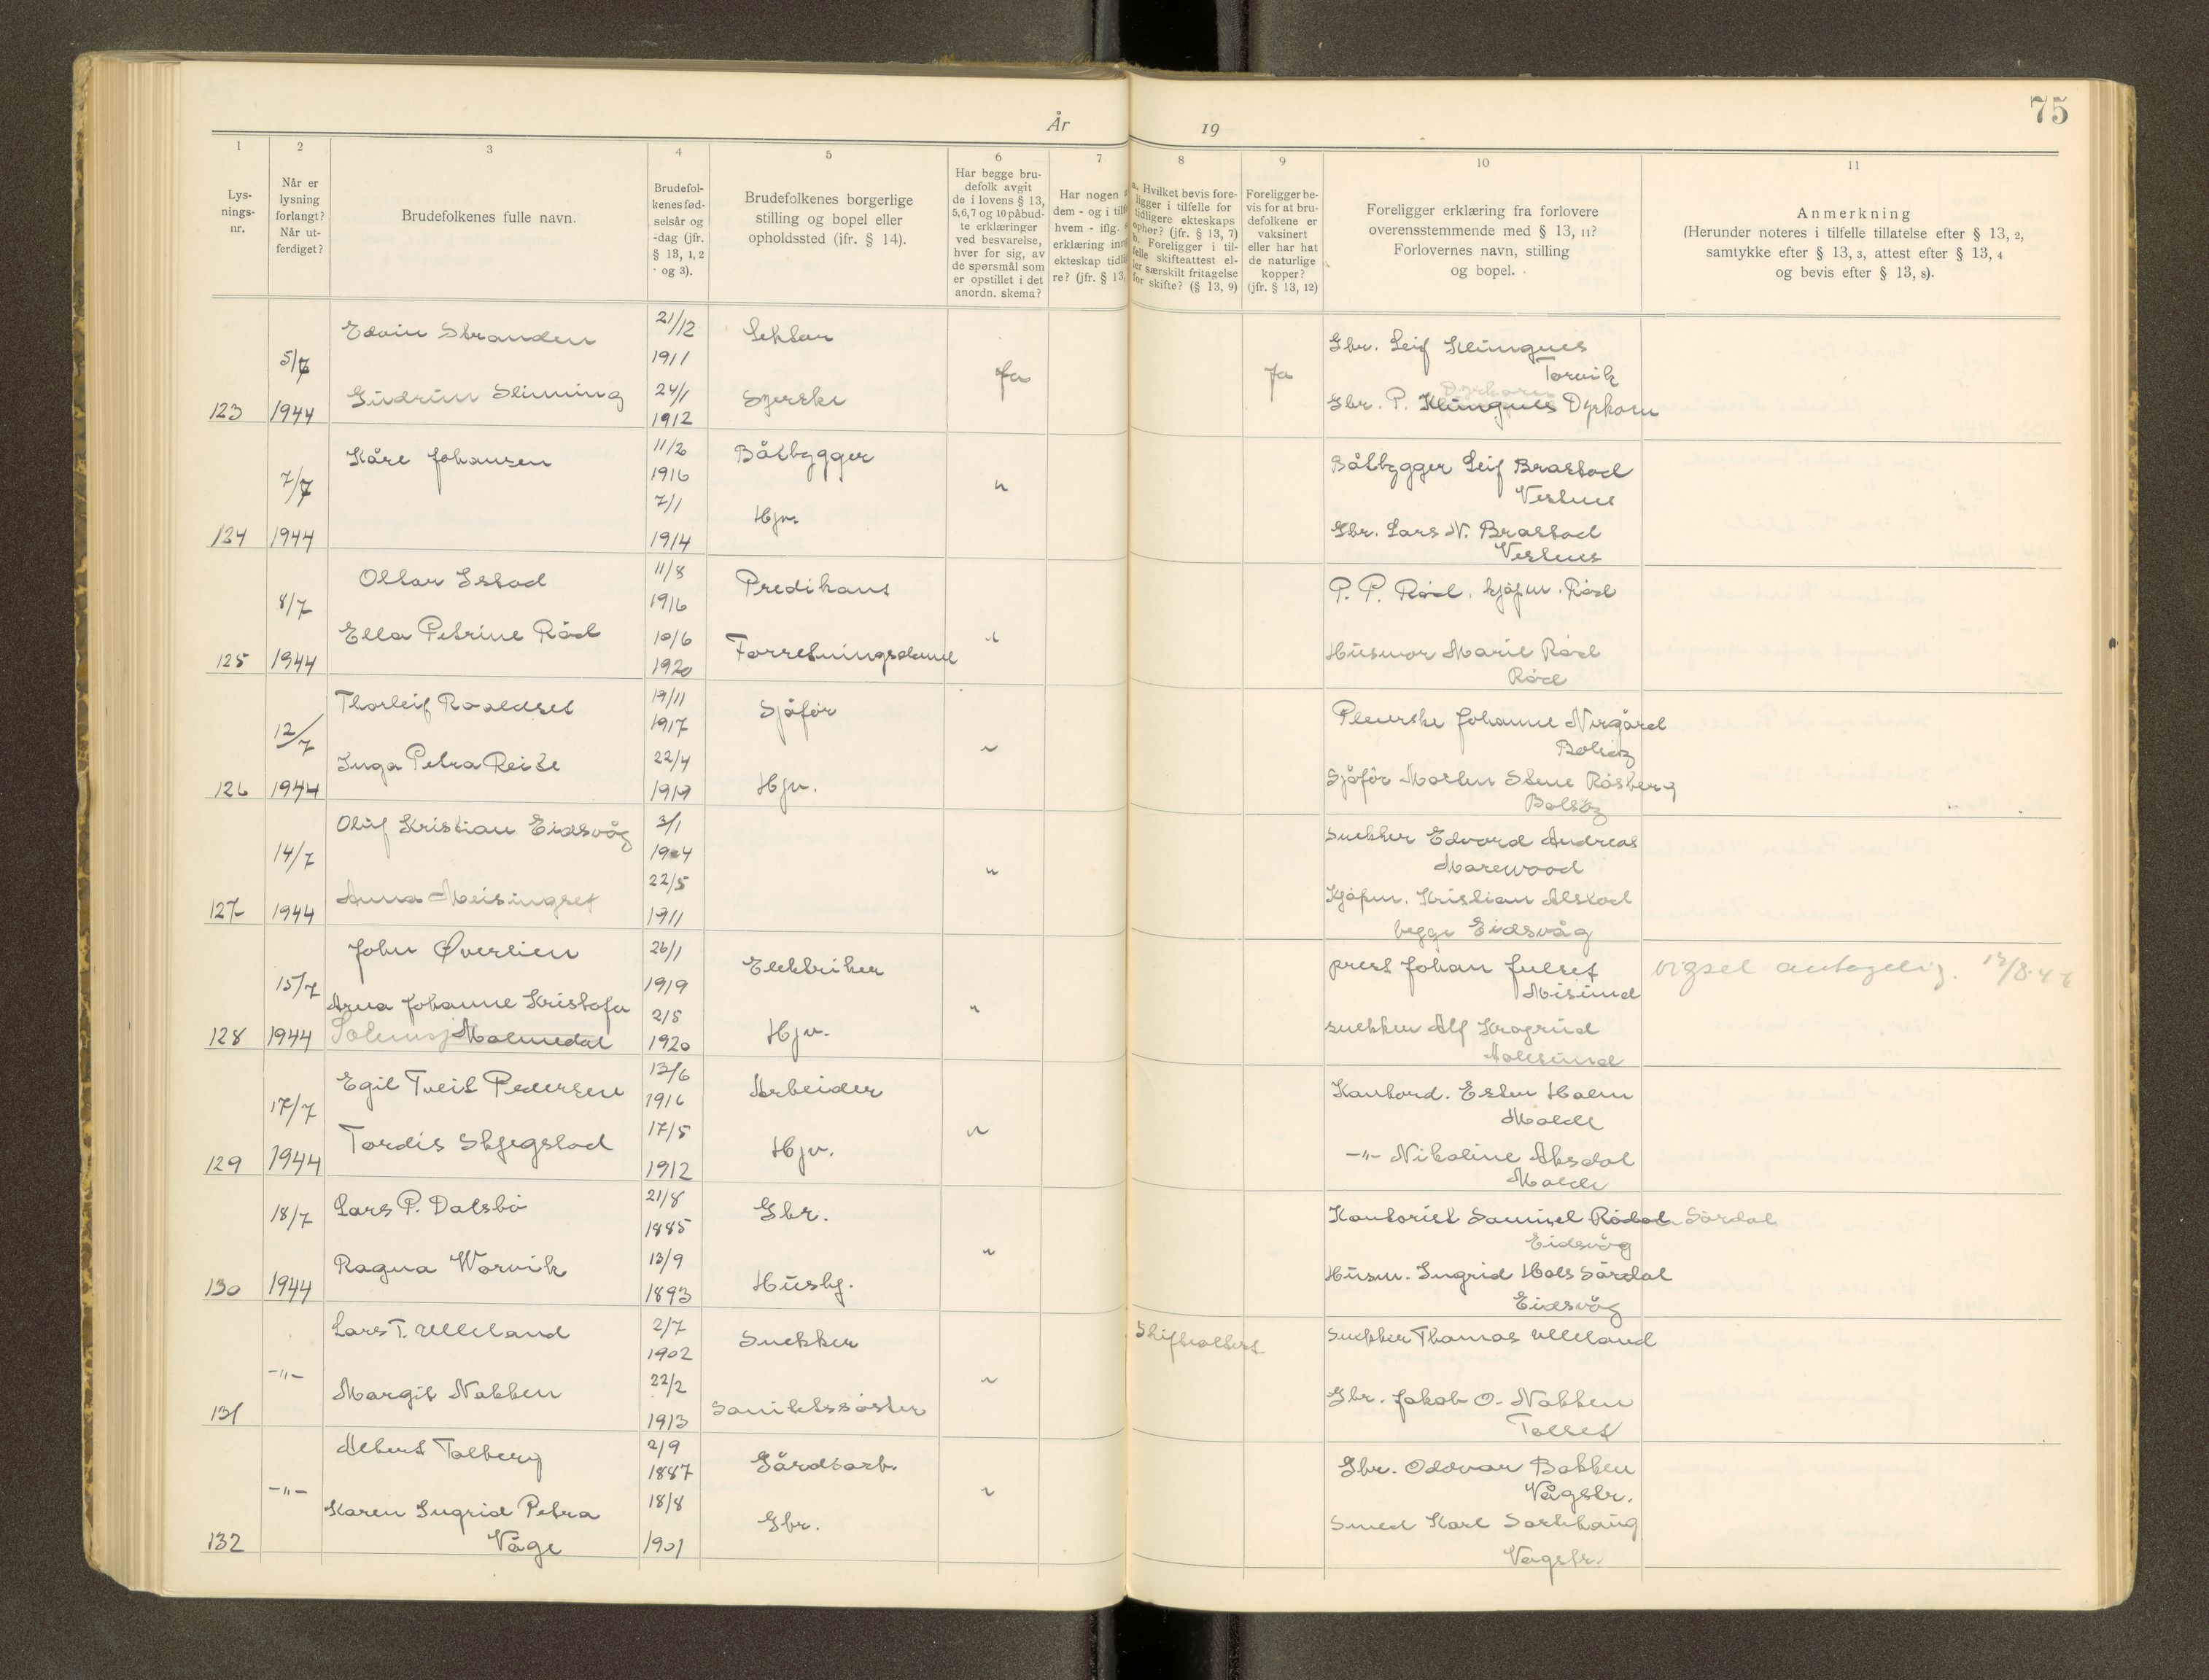 75
År 19
1 2 3 4 5 6 7 8 9 10 11
Lys-
nings-
nr.
Når er
lysning
forlangt?
Når ut-
ferdiget?
Brudefolkenes fulle navn.
Brudefol-
kenes fød-
selsår og
-dag (jfr.
§ 13, 1, 2
og 3).
Brudefolkenes borgerlige
stilling og bopel eller
opholdssted (jfr. § 14).
Har begge bru-
defolk avgit
de i lovens § 13,
5, 6, 7 og 10 påbud-
te erklæringer
ved besvarelse,
hver for sig, av
de spørsmål som
er opstillet i det
anordn. skema?
Har nogen
dem - og i
hvem - iflg.
erklæring
ekteskap
re? (jfr. § 13,
a. Hvilket bevis fore-
ligger i tilfelle for
tidligere ekteskaps
ophør? (jfr. § 13, 7)
b. Foreligger i til-
felle skifteattest el-
ler særskilt fritagelse
for skifte? (§ 13, 9)
Foreligger be-
vis for at bru-
defolkene er
vaksinert
eller har hat
de naturlige
kopper?
(jfr. § 13, 12)
Foreligger erklæring fra forlovere
overensstemmende med § 13, 11?
Forlovernes navn, stilling
og bopel.
Anmerkning
(Herunder noteres i tilfelle tillatelse efter § 13, 2,
samtykke efter § 13, 3, attest efter § 13, 4
og bevis efter § 13, 8).
123
5/7
1944
Edvin Stranden
Gudrun Slinning
21/12
1911
24/1
1912
Lektor
Syerske
Ja
Ja
Gbr. Leif Klungnes
Torvik
Dyrkorn
Gbr. P. Klungnes Dyrkorn
124
7/7
1944
Kåre Johansen
11/2
1916
7/1
1914
Båtbygger
Hjv.
"
Båtbygger Leif Brastad
Vestnes
Gbr. Lars N. Brastad
Vestnes
125
8/7
1944
Ottar Istad
Ella Petrine Röd
11/8
1916
10/6
1920
Predikant
Forretningsdame
"
P. P. Röd, kjøpm. Röd
Husmor Marie Röd
Röd
126
12/7
1944
Thorleif Roaldset
Inga Petra Reite
19/11
1917
22/4
1919
Sjåfør
Hjv.
"
Pleierske Johanne Nergård
Bolsøy
Sjåfør Morten Stene Rösberg
Bolsöy
127
14/7
1944
Oluf Kristian Eidsvåg
Anna Meisingset
3/1
1904
22/5
1911
"
snekker Edvard Andreas
Marewood
Kjøpm. Kristian Alstad
begge Eidsvåg
128
15/7
1944
John Øverlien
Arna Johanne Kristofa
Solemsj Malmedal
26/1
1919
2/5
1920
Elektriker
Hjv.
"
prest Johan Julset
Misund
snekker Alf Krogrud
Aalesund
vigsel antagelig.
129
17/7
1944
Egil Tveit Pedersen
Tordis Skjegstad
13/6
1916
17/5
1912
Arbeider
Hjv.
"
Kontord. Ester Holm
Molde
-"- Nikoline Aksdal
Molde
130
18/7
1944
Lars P. Dalsbö
Ragna Worvik
21/8
1885
13/9
1893
Gbr.
Husbg.
"
Kontorist Samuel Rödal Sördal
Eidsvåg
Husm. Ingrid Hols Sördal
Eidsvåg
131
-"-
Lars T. Ulleland
Margit Nakken
2/7
1902
22/2
1913
Snekker
Sanitetssöster
"
Skifteattest
Snekker Thomas Ulleland
Gbr. Jakob O. Nakken
Tolset
132
-"-
Albert Talberg
Karen Ingrid Petra
Våge
2/9
1887
18/8
1901
Gårdsarb.
Gbr.
"
Gbr. Oddvar Bakken
Vågstr.
Smed Karl Sorthaug
Vågstr.